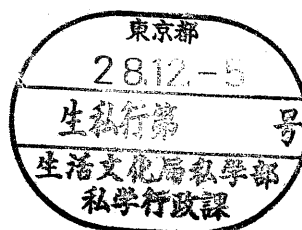 東京都
28.12.-5
生私行第 号
生活文化局私学部
私学行政課